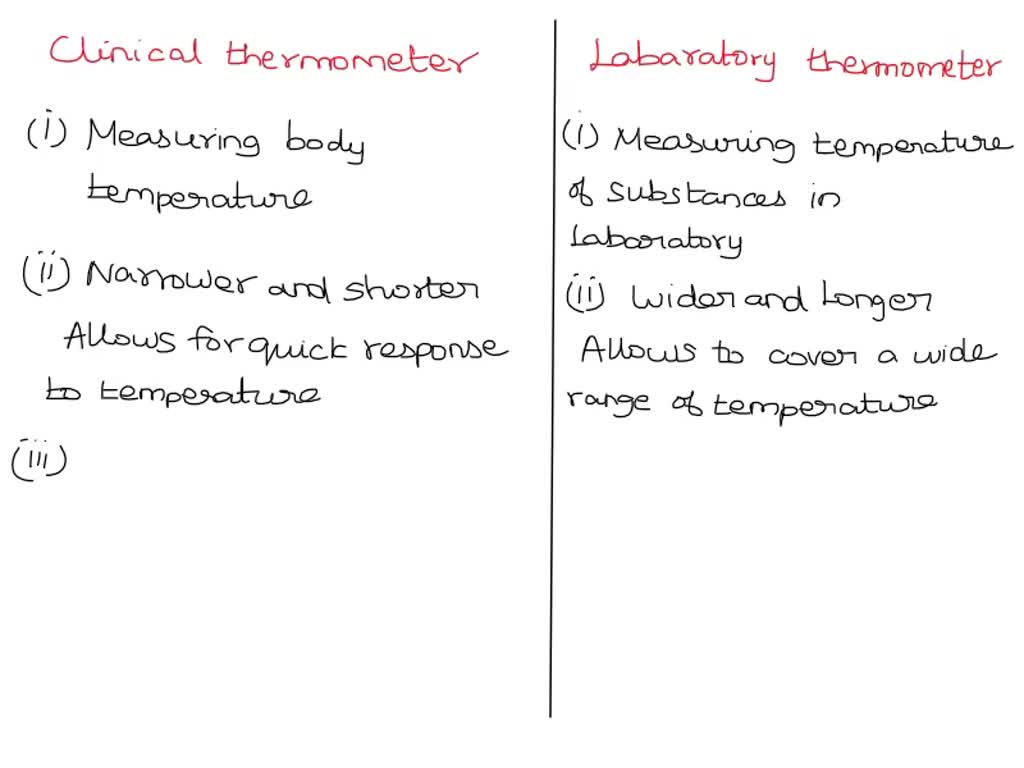 Clinical thermometer
(i) Measuring body
temperature
(ii) Narrower and shorter
Allows for quick response
to temperature
(iii)
Labaratory thermometer
(i) Measuring temperature
of substances in
Laboratory
(ii) wider and Longer
Allows to cover a wide
range of temperature